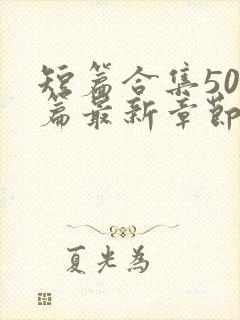 短篇合集50
篇最新章节
夏光为